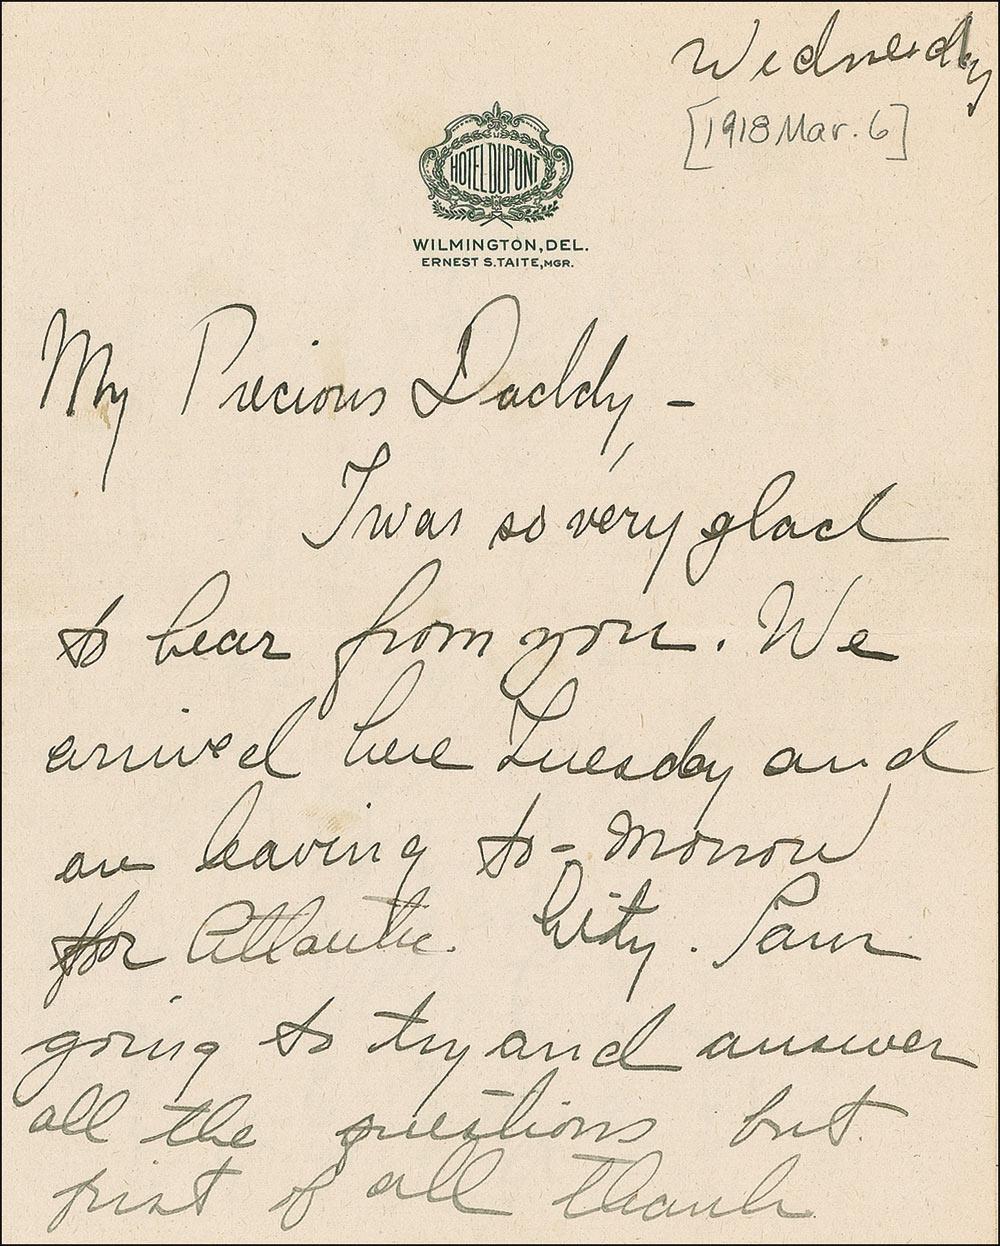 Wednesday
[1918 Mar. 6]
HOTEL DUPONT
WILMINGTON, DEL.
ERNEST S. TAITE, MGR.
My Precious Daddy, -
I was so very glad
to hear from you. We
arrived here Tuesday and
are leaving to-morrow
for Atlantic City. I am
going to try and answer
all the questions but
first of all thank